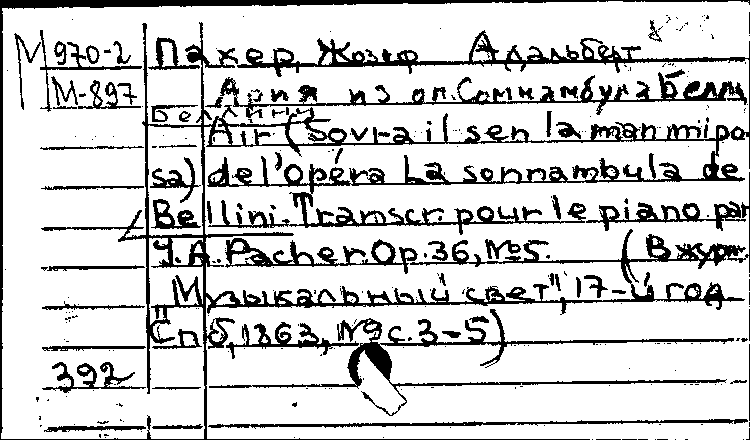 М 970-2 Пахер, Жозеф Адальберт
М-897 Ария из оп. Сомнамбула Белли
Беллини
Air (Sovra il sen la man mi po-
sa) del'opéra La sonnambula de
Bellini. Transcr. pour le piano par
J. A. Pacher. Op. 36, №5. (В журн.
"Музыкальный свет", 17-й год
Спб, 1863, №9 с. 3-5)
392